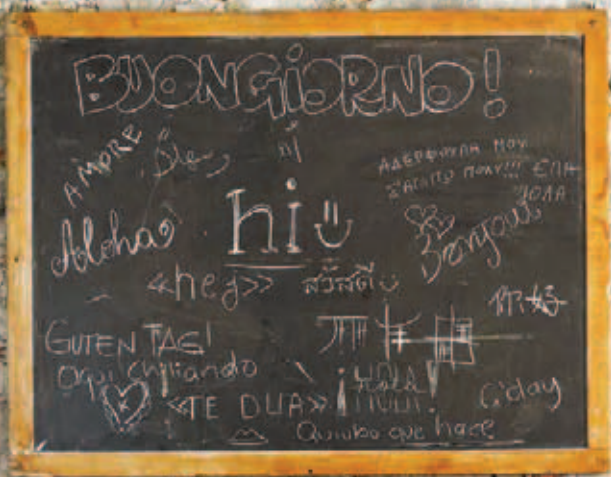 BUONGiORNO!
AMORE
ΑΔΕΡΦΟΥΛΑ ΜΟΥ
Σ'ΑΓΑΠΩ ΠΟΛΥ!!!
Aloha
hi
Bonjour
<<hej>>
สวัสดี
你好
GUTEN TAG!
Aqui chiliando
<<TE DUA>>
¡HOLA!
G'day
Quiubo que hace